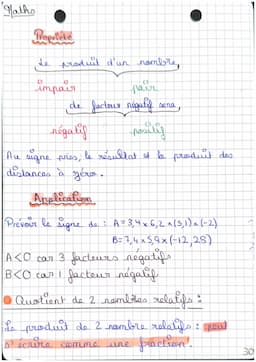 Maths
Propriété
Le produit d'un nombre
impair pair
de facteur négatif sera
négatif positif
Au signe près, le résultat et le produit des
distances à zéro.
Application
Prévoir le signe de : A = 3,4 x 6,2 x (5,1) x (-2)
B = 7,4 x 5,9 x (-12,25)
A<0 car 3 facteurs négatifs
B<0 car 1 facteur négatif
Quotient de 2 nombres relatifs :
Le produit de 2 nombre relatifs : peut
s'écrire comme une fraction.
30